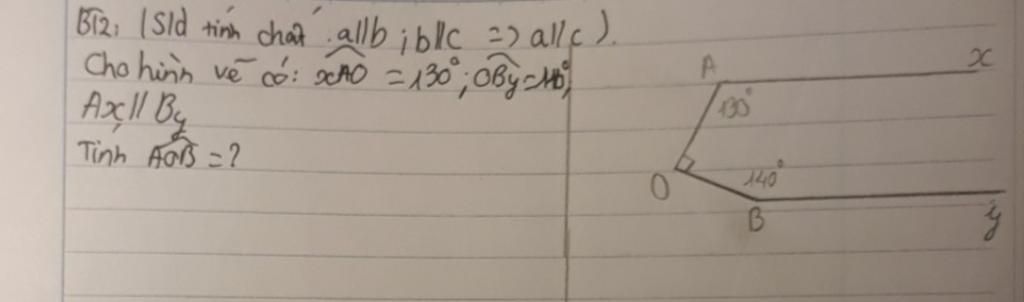 BT2: (S/d tính chất a//b ; b//c => a//c).
Cho hình vẽ có: xAO = 130°; OBy = 140°;
Ax // By
Tính AOB = ?
A
x
130°
O
140°
B
y